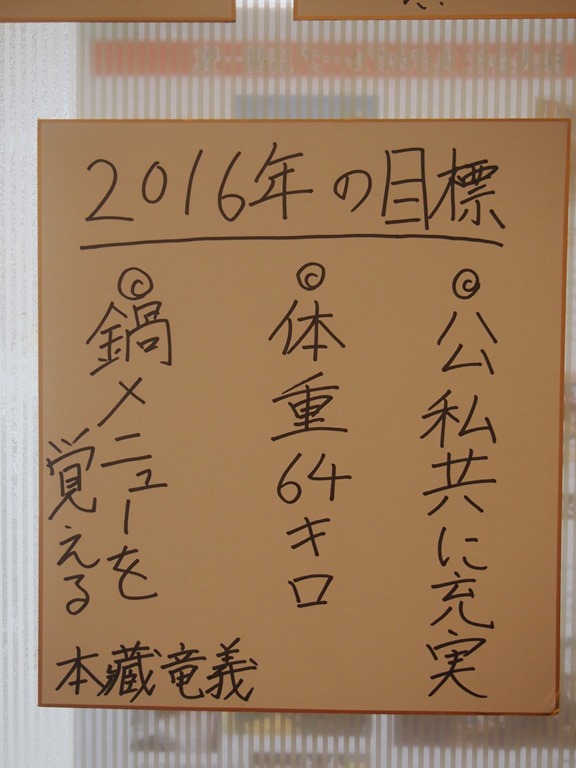 2016年の目標
◎公私共に充実
◎体重64キロ
◎鍋メニューを
覚える
本藏竜義